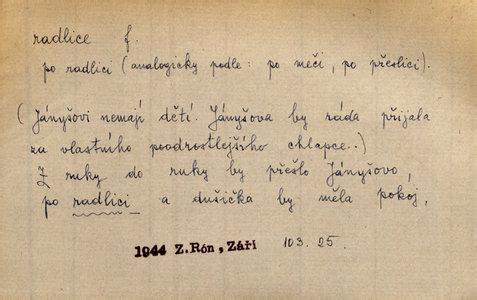 radlice f.
po radlici (analogicky podle: po meči, po přeslici).
(Jányšovi nemají dětí. Jányšova by ráda přijala
za vlastního poodrostlejšího chlapce..)
Z ruky do ruky by přešlo Jányšovo,
po radlici a dušička by měla pokoj,
1944 Z. Rón, Září 103. 25.